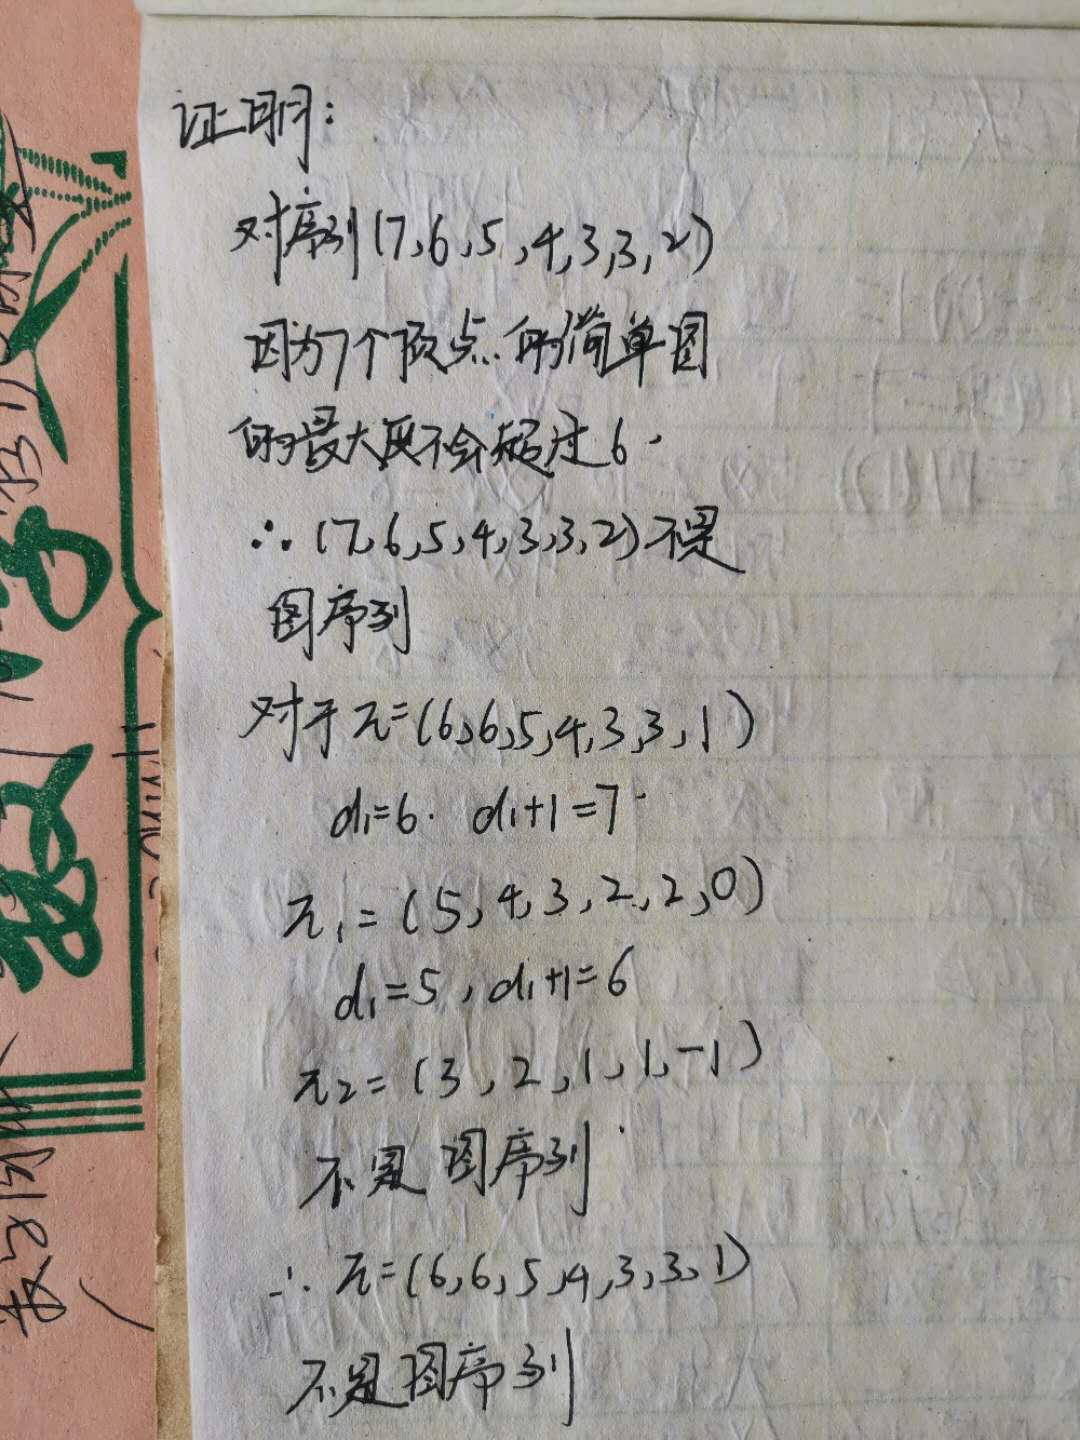 证明：
对序列(7,6,5,4,3,3,2)
因为7个顶点的简单图
的最大度不会超过6.
∴(7,6,5,4,3,3,2)不是
图序列
对于π=(6,6,5,4,3,3,1)
d₁=6. d₁+1=7.
π₁=(5,4,3,2,2,0)
d₁=5,d₁+1=6
π₂=(3,2,1,1,-1)
不是图序列.
∴π=(6,6,5,4,3,3,1)
不是图序列